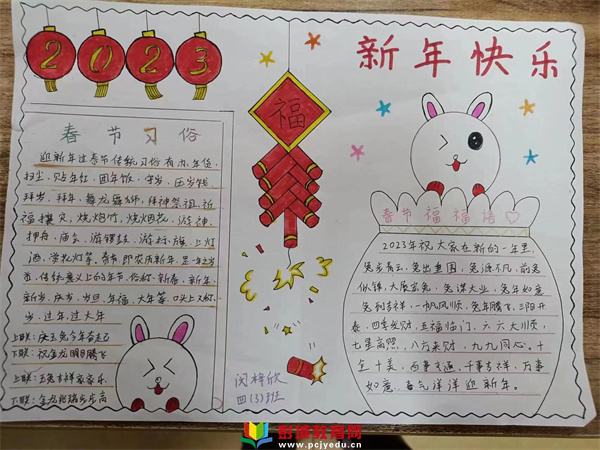 2023
新年快乐
福
春节习俗
迎新年过春节传统习俗有办年货、
扫尘、贴年红、团年饭、守岁、压岁钱、
拜岁、拜年、舞龙舞狮、拜神祭祖、祈
福攘灾、烧炮竹、烧烟花、游神、
押舟、庙会、游锣鼓、游标旗、上灯
酒、赏花灯等。春节即农历新年,是一年之岁
首、传统意义上的年节。俗称新春、新年、
新岁、岁旦、年禧、大年等,口头上又称度
岁、过年、过大年
上联:庆玉兔今年奋起
下联:祝金龙明朝腾飞
上联:玉兔吉祥家家乐
下联:
春节福福语
2023年祝大家在新的一年里,
兔步青云、兔出重围、兔源不凡、前兔
似锦、大展宏兔、兔谋大业、兔年如意
兔到吉祥、一帆风顺、兔年腾飞、三阳开
泰、四季发财、五福临门、六六大顺、
七星高照、八方来财、九九同心。十
全十美、百事亨通、千事吉祥、万事
如意、喜气洋洋迎新年。
闵梓欣
四(3)班
彭族教育网
www.pcjyedu.cn